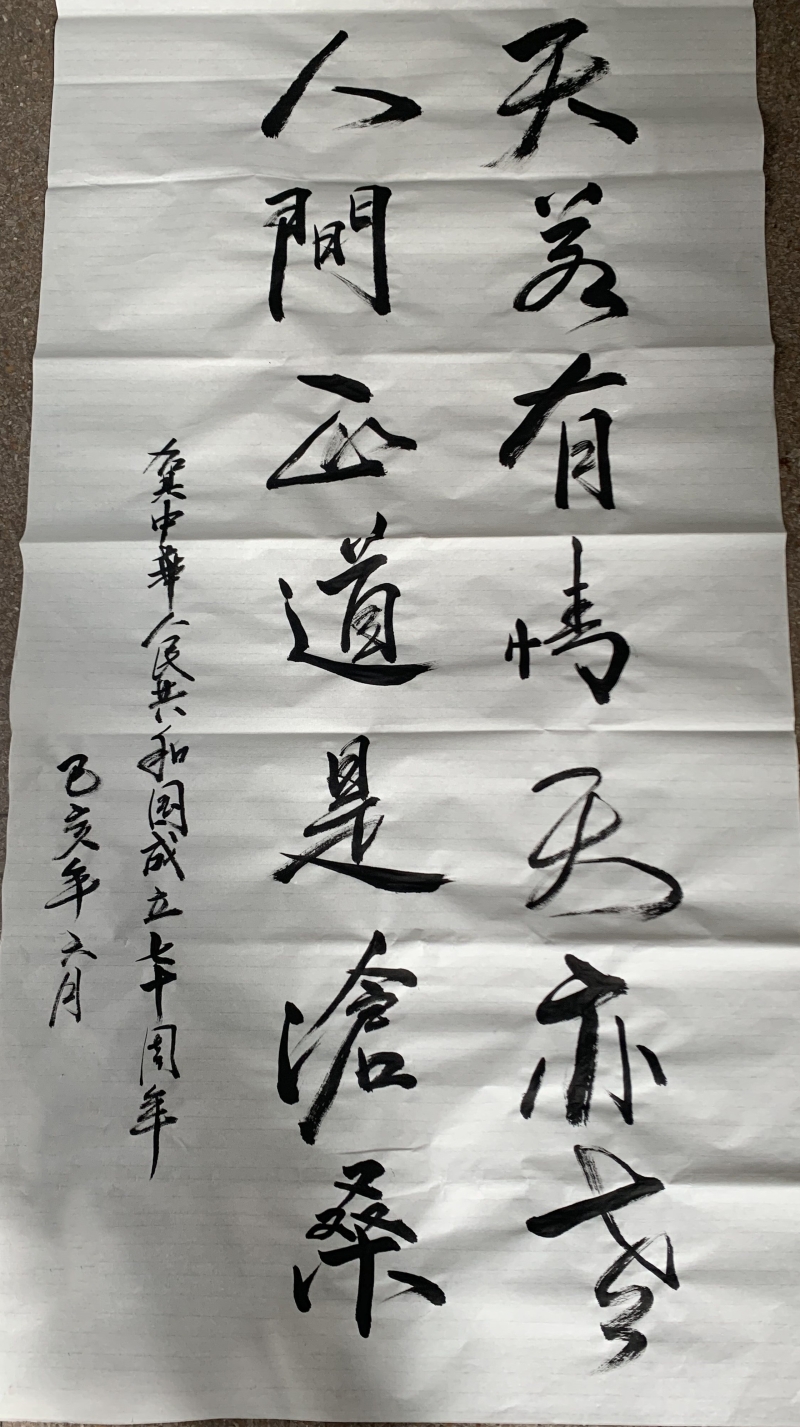 天若有情天亦老
人間正道是滄桑
中華人民共和国成立七十周年
己亥年六月